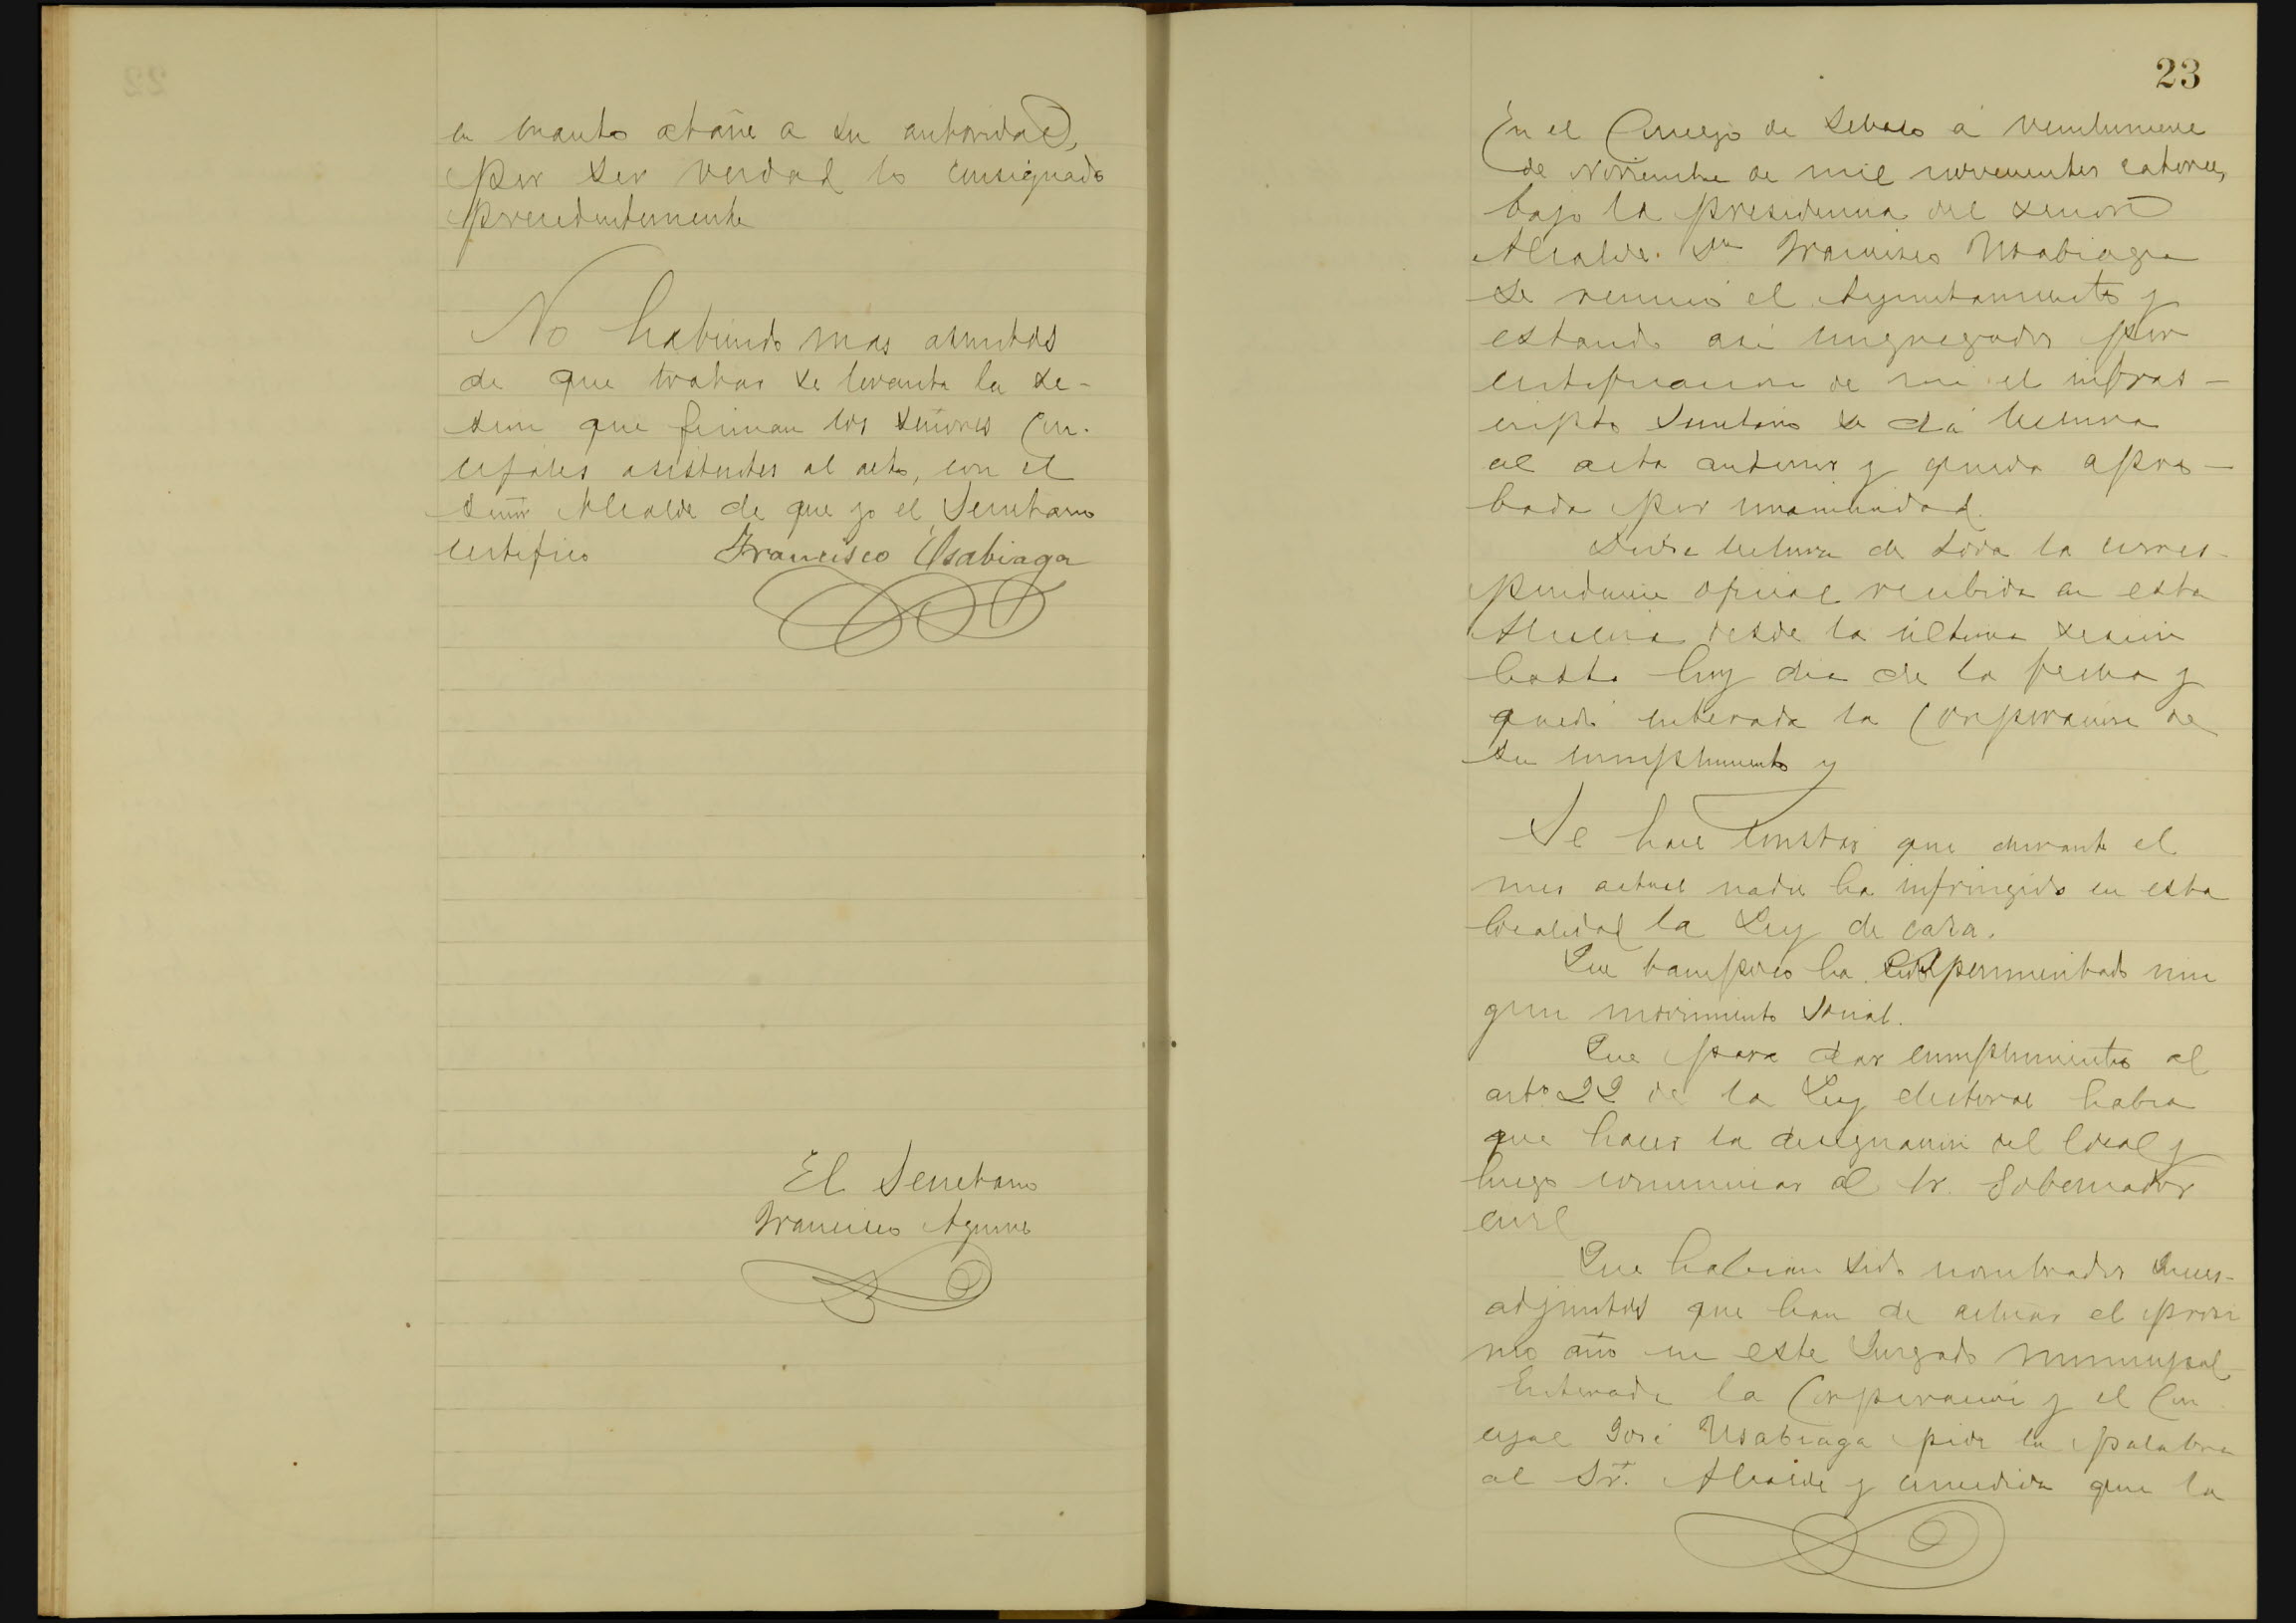 en cuanto atañe a su autoridad,
por ser verdad lo consignado
precedentemente
No habiendo mas asuntos
de que tratar se levanta la se-
sion que firman los señores Con-
cejales asistentes al acto, con el
señor Alcalde de que yo el Secretario
certifico Francisco Usabiaga
El Secretario
Francisco Aguirre
23
En el Concejo de a veintinueve
de Noviembre de mil novecientos catorce,
bajo la presidencia del señor
Alcalde Dn Francisco Usabiaga
se reunió el Ayuntamiento y
estando asi congregados por
certificacion de mi el infras-
cripto Secretario se dá lectura
al acta anterior y queda apro-
bada por unanimidad.
Dióse lectura de toda la corres-
pondencia oficial recibida en esta
Alcaldia desde la última sesión
hasta hoy dia de la fecha y
quedó enterada la Corporacion de
su cumplimiento y
Se hace constar que durante el
mes actual nadie ha infringido en esta
localidad la Ley de caza.
Que tampoco ha experimentado nin
gun movimiento social.
Que para dar cumplimiento al
artº 22 de la Ley electoral habia
que hacer la designacion del local y
luego comunicar al Sr. Gobernador
civil
Que habian sido nombrados Jueces-
adjuntos que han de actuar el proxi
mo año en este Juzgado municipal
Enterada la Corporación y el Con
cejal José Usabiaga pide la palabra
al Sr. Alcalde y concedida que la